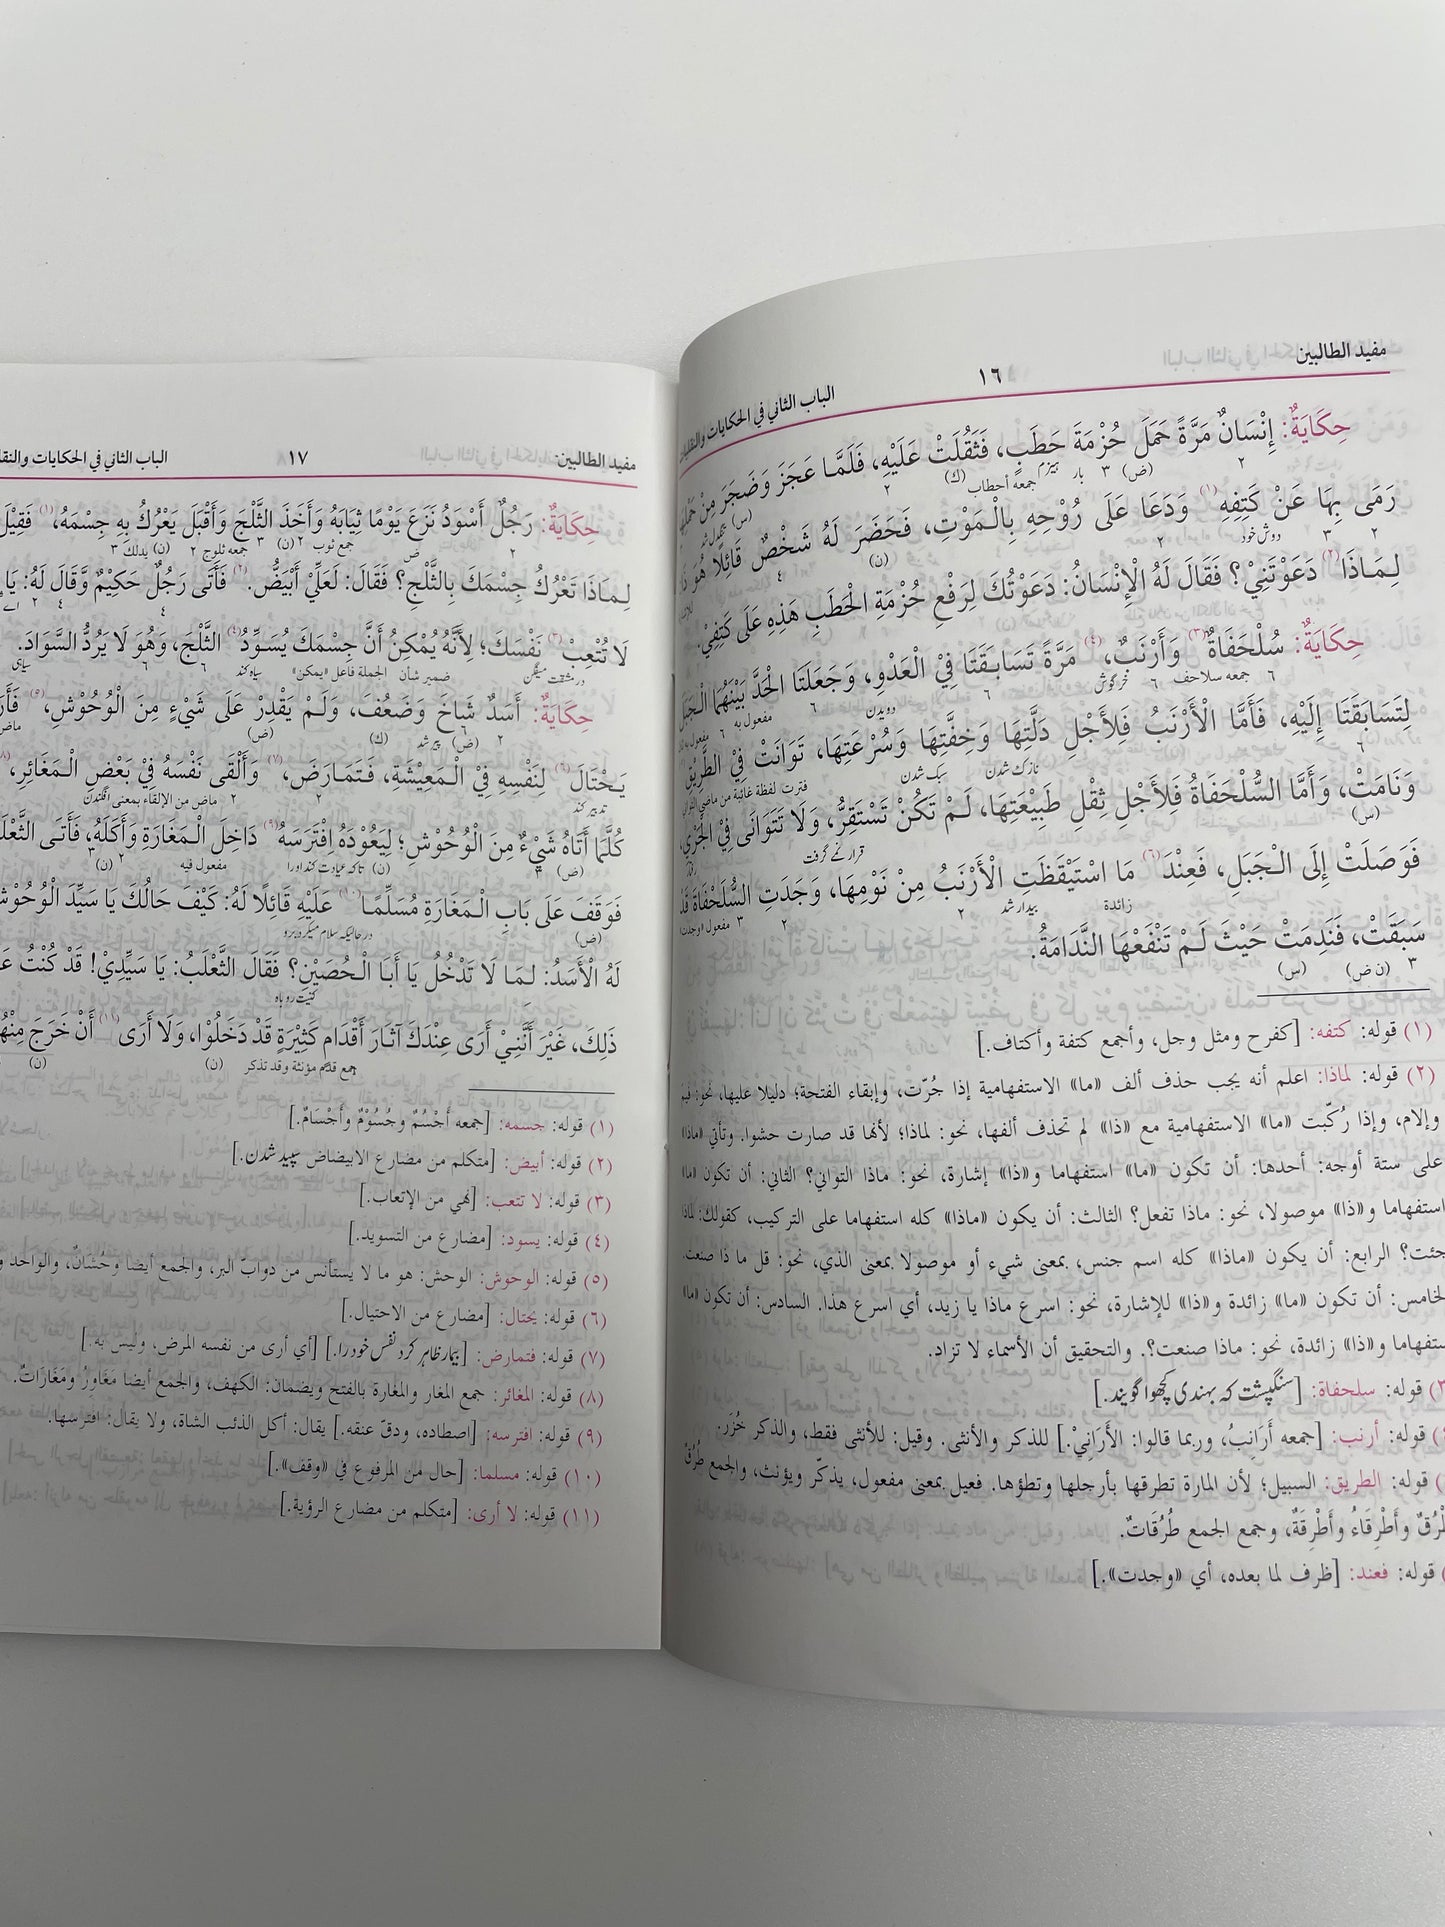 مفيد الطالبين ١٦ الباب الثاني في الحكايات والنقليات
حِكَايَةٌ: إِنْسَانٌ مَرَّةً حَمَلَ حُزْمَةَ حَطَبٍ، فَثَقُلَتْ عَلَيْهِ، فَلَمَّا عَجَزَ وَضَجَرَ مِنْ حَمْلِهَا
٢ (ض) ٣ بار ہیزم جمعه أحطاب (ك) ٢ (س)
رَمَى بِهَا عَنْ كَتِفِهِ(١) وَدَعَا عَلَى رُوْحِهِ بِالْمَوْتِ، فَحَضَرَ لَهُ شَخْصٌ قَائِلًا هُوَ ذَا
٢ ٣ دوش خود ٢ (ن) ٤
لِمَاذَا(٢) دَعَوْتَنِيْ؟ فَقَالَ لَهُ الْإِنْسَانُ: دَعَوْتُكَ لِرَفْعِ حُزْمَةِ الْحَطَبِ هَذِهِ عَلَى كَتِفِيْ.
حِكَايَةٌ: سُلْحَفَاةٌ(٣) وَأَرْنَبٌ،(٤) مَرَّةً تَسَابَقَتَا فِيْ الْعَدْوِ، وَجَعَلَتَا الْحَدَّ بَيْنَهُمَا الْجَبَلَ
٦ جمعه سلاحف ٦ خرگوش ٦ دویدن ٦ مفعول به ٦
لِتَسَابَقَتَا إِلَيْهِ، فَأَمَّا الْأَرْنَبُ فَلِأَجْلِ دَلَّتِهَا وَخِفَّتِهَا وَسُرْعَتِهَا، تَوَانَتْ فِيْ الطَّرِيْقِ
٦ نازک شدن سبک شدن فترت لفظة غائبة من ماضي التواني
وَنَامَتْ، وَأَمَّا السُّلْحَفَاةُ فَلِأَجْلِ ثِقْلِ طَبِيْعَتِهَا، لَمْ تَكُنْ تَسْتَقِرُّ، وَلَا تَتَوَانَى فِيْ الْجَرْيِ،
(س) قرار نے گرفت
فَوَصَلَتْ إِلَى الْجَبَلِ، فَعِنْدَ(٦) مَا اسْتَيْقَظَتِ الْأَرْنَبُ مِنْ نَوْمِهَا، وَجَدَتِ السُّلْحَفَاةَ قَدْ
زائدة بیدار شد ٢ ٢ ٣ مفعول (وجدت)
سَبَقَتْ، فَنَدِمَتْ حَيْثُ لَمْ تَنْفَعْهَا النَّدَامَةُ.
٣ (ن ض) (س)
(١) قوله: كتفه: [كفرح ومثل وجل، وأجمع كتفة وأكتاف.]
(٢) قوله: لماذا: اعلم أنه يجب حذف ألف «ما» الاستفهامية إذا جُرّت، وإبقاء الفتحة؛ دليلا عليها، نحو: فيم
وإلام، وإذا رُكّبت «ما» الاستفهامية مع «ذا» لم تحذف ألفها، نحو: لماذا؛ لأنها قد صارت حشوا. وتأتي «ماذا»
على ستة أوجه: أحدها: أن تكون «ما» استفهاما و«ذا» إشارة، نحو: ماذا التواني؟ الثاني: أن تكون «ما»
استفهاما و«ذا» موصولا، نحو: ماذا تفعل؟ الثالث: أن يكون «ماذا» كله استفهاما على التركيب، كقولك: لماذا
جئت؟ الرابع: أن يكون «ماذا» كله اسم جنس، بمعنى شيء أو موصولا بمعنى الذي، نحو: قل ما ذا صنعت.
الخامس: أن تكون «ما» زائدة و«ذا» للإشارة، نحو: اسرع ماذا يا زيد، أي اسرع هذا. السادس: أن تكون «ما»
استفهاما و«ذا» زائدة، نحو: ماذا صنعت؟. والتحقيق أن الأسماء لا تزاد.
قوله: سلحفاة: [سنگپشت کہ بہندی کچھوا گویند.]
قوله: أرنب: [جمعه أَرَانِبُ، وربما قالوا: الأَرَانِيْ.] للذكر والأنثى. وقيل: للأنثى فقط، والذكر خُزَر.
قوله: الطريق: السبيل؛ لأن المارة تطرقها بأرجلها وتطؤها. فعيل بمعنى مفعول، يذكّر ويؤنث، والجمع طُرُقٌ
وأَطْرِقَاءُ وأَطْرِقَةٌ، وجمع الجمع طُرُقَاتٌ.
قوله: فعند: [ظرف لما بعده، أي «وجدت».]
مفيد الطالبين ١٧ الباب الثاني في الحكايات والنقل
حِكَايَةٌ: رَجُلٌ أَسْوَدُ نَزَعَ يَوْمًا ثِيَابَهُ وَأَخَذَ الثَّلْجَ وَأَقْبَلَ يَعْرُكُ بِهِ جِسْمَهُ،(١) فَقِيْلَ
٢ ض جمع ثوب ٢ (ن) ٣ جمعه ثلوج ٢ (ن) يدلك ٣
لِمَاذَا تَعْرُكُ جِسْمَكَ بِالثَّلْجِ؟ فَقَالَ: لَعَلِّي أَبْيَضُّ.(٢) فَأَتَى رَجُلٌ حَكِيْمٌ وَّقَالَ لَهُ: يَا
٤ ٤ ٢ اے
لَا تُتْعِبْ(٣) نَفْسَكَ؛ لِأَنَّهُ يُمْكِنُ أَنَّ جِسْمَكَ يُسَوِّدُ(٤) الثَّلْجَ، وَهُوَ لَا يَرُدُّ السَّوَادَ.
در مشقت میگن ضمیر شان الجملة فاعل «يمكن» سیاہ کند ٦ ٦ سیاہی
حِكَايَةٌ: أَسَدٌ شَاخَ وَضَعُفَ، وَلَمْ يَقْدِرْ عَلَى شَيْءٍ مِنَ الْوُحُوْشِ،(٥) فَأَرَ
٢ (ض) پیر شد (ك) (ض) ماض
يَحْتَالَ(٦) لِنَفْسِهِ فِيْ الْمَعِيْشَةِ، فَتَمَارَضَ،(٧) وَأَلْقَى نَفْسَهُ فِيْ بَعْضِ الْمَغَائِرِ،(٨)
تدبیر کند ٢ ٢ ماض من الإلقاء بمعنى افگندن
كُلَّمَا أَتَاهُ شَيْءٌ مِنَ الْوُحُوْشِ؛ لِيَعُوْدَهُ اِفْتَرَسَهُ(٩) دَاخِلَ الْمَغَارَةِ وَأَكَلَهُ، فَأَتَى الثَّعْلَ
(ض) ٣ (ن) تاکہ عیادت کند اورا مفعول فيه ٢ (ن) ٣
فَوَقَفَ عَلَى بَابِ الْمَغَارَةِ مُسَلِّمًا(١٠) عَلَيْهِ قَائِلًا لَهُ: كَيْفَ حَالُكَ يَا سَيِّدَ الْوُحُوْشِ
(ض) در حالیکہ سلام میکرد برو
لَهُ الْأَسَدُ: لِمَا لَا تَدْخُلُ يَا أَبَا الْحُصَيْنِ؟ فَقَالَ الثَّعْلَبُ: يَا سَيِّدِيْ! قَدْ كُنْتُ عَ
کنیت روباہ
ذَلِكَ، غَيْرَ أَنَّنِيْ أَرَى عِنْدَكَ آثَارَ أَقْدَامٍ كَثِيْرَةٍ قَدْ دَخَلُوْا، وَلَا أَرَى(١١) أَنْ خَرَجَ مِنْهُ
جمع قدم مؤنثة وقد تذكر (ن) (ن)
(١) قوله: جسمه: [جمعه أَجْسُمٌ وجُسُوْمٌ وأَجْسَامٌ.]
(٢) قوله: أبيض: [متكلم من مضارع الابيضاض سپید شدن.]
(٣) قوله: لا تتعب: [نهي من الإتعاب.]
(٤) قوله: يسود: [مضارع من التسويد.]
(٥) قوله: الوحوش: الوحش: هو ما لا يستأنس من دوابّ البر، والجمع أيضا وحُشَانٌ، والواحد و
(٦) قوله: يحتال: [مضارع من الاحتيال.]
(٧) قوله: فتمارض: [بیمار ظاہر کرد نفس خود را.] [أي أرى من نفسه المرض، وليس به.]
(٨) قوله: المغائر: جمع المغار والمغارة بالفتح ويضمان: الكهف، والجمع أيضا مَغَاوِرُ ومَغَارَاتٌ.
(٩) قوله: افترسه: [اصطاده، ودقّ عنقه.] يقال: أكل الذئب الشاة، ولا يقال: افترسها.
(١٠) قوله: مسلما: [حال من المرفوع في «وقف».]
(١١) قوله: لا أرى: [متكلم من مضارع الرؤية.]